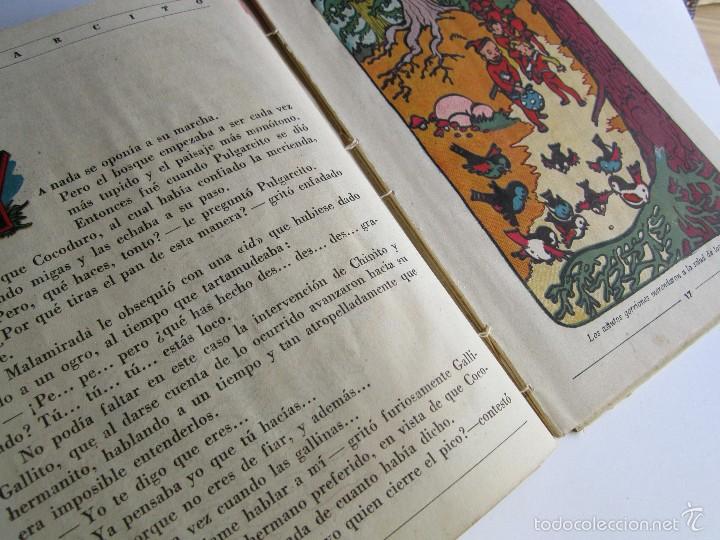 ARCITO
A nada se oponía a su marcha.
Pero el bosque empezaba a ser cada vez
más tupido y el paisaje más monótono.
Entonces fué cuando Pulgarcito se dió
que Cocoduro, al cual había confiado la merienda,
ando migas y las echaba a su paso.
Pero, qué haces, tonto? — le preguntó Pulgarcito.
¿Por qué tiras el pan de esta manera? — gritó enfadado
e.
Malamirada le obsequió con una «id» que hubiese dado
do a un ogro, al tiempo que tartamudeaba:
— ¡Pe... pe... pero ¿qué has hecho des... des... des... gra-
ado? Tú... tú... tú... estás loco.
No podía faltar en este caso la intervención de Chinito y
Gallito, que al darse cuenta de lo ocurrido avanzaron hacia su
hermanito, hablando a un tiempo y tan atropelladamente que
era imposible entenderlos.
— Yo te digo que eres...
Ya pensaba yo que tú hacías...
porque no eres de fiar, y además...
vez cuando las gallinas...
ame hablar a mí — gritó furiosamente Galli-
hermano preferido, en vista de que Coco-
ada de cuanto había dicho.
yo quien cierre el pico? — contestó
Los gorriones merendaron a la salud de los
17
todocoleccion.net